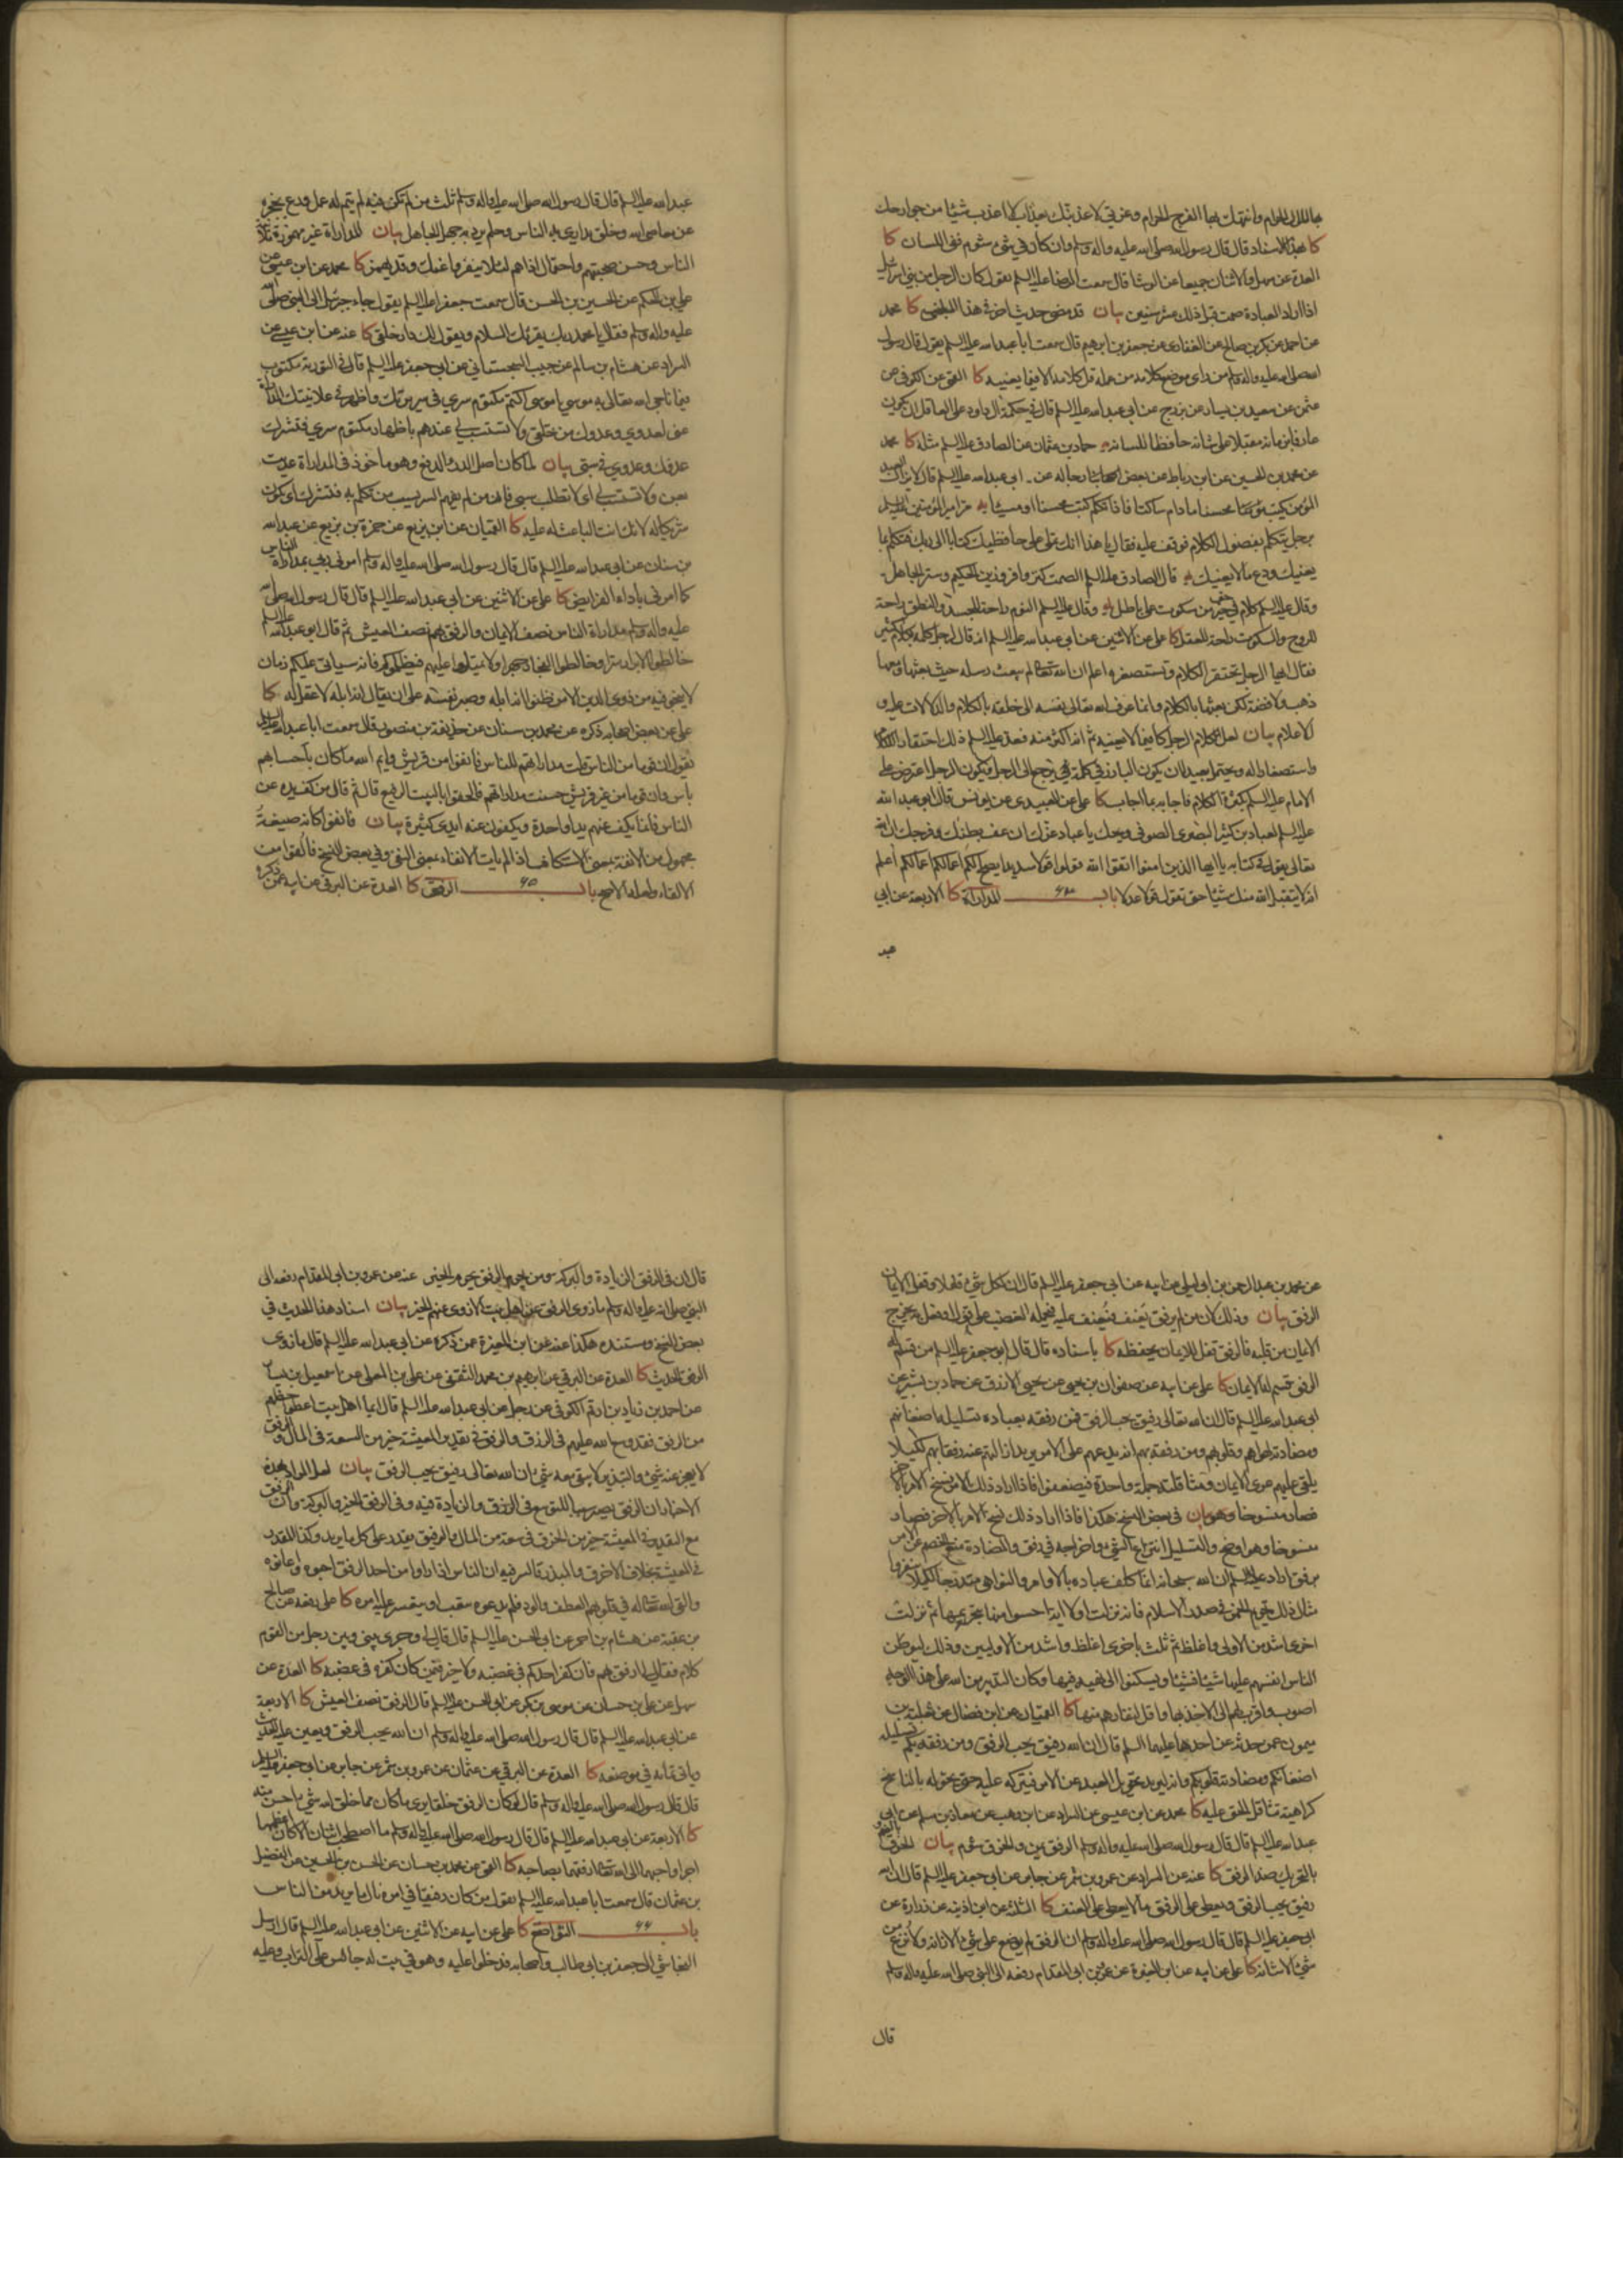 بها المال الحرام وانتهك بها الفرج الحرام وعزتي لاعذبنك بعذاب لا اعذب شيئا من جوارحك
كا بهذا الاسناد قال قال رسول الله صلى الله عليه واله وسلم وان كان في شيء شوم ففي اللسان كا
العدة عن سهل والاثنان جميعا عن الوشا قال سمعت الرضا عليه السلم يقول كان الرجل من بني اسرائيل
اذا اراد العبادة صمت قبل ذلك عشر سنين بيان قد مضى حديث اخر في هذا المعنى كا محمد
عن احمد عن بكر بن صالح عن الغفاري عن جعفر بن ابرهيم قال سمعت ابا عبد الله عليه السلم يقول قال رسول
الله صلى الله عليه واله وسلم من راى موضع كلامه من عمله قل كلامه الا فيما يعنيه كا القمي عن الكوفي عن
عثمن عن سعيد بن يسار عن بزرج عن ابي عبد الله عليه السلم قال في حكمة آل داود على العاقل ان يكون
عارفا بزمانه مقبلا على شانه حافظا للسانه يه حماد بن عثمان عن الصادق عليه السلم مثله كا محمد
عن محمد بن الحسين عن ابن رباط عن بعض رجاله عن ابي عبد الله عليه السلم قال لا يزال العبد
المؤمن يكتب محسنا ما دام ساكتا فاذا تكلم كتب محسنا او مسيئا يه مر امير المؤمنين عليه السلم
برجل يتكلم بفضول الكلام فوقف عليه فقال يا هذا انك تملي على حافظيك كتابا الى ربك فتكلم بما
يعنيك ودع ما لا يعنيك يه قال الصادق عليه السلم الصمت كنز وافر وزين الحكيم وستر الجاهل
وقال عليه السلم كلام في حق خير من سكوت على باطل يه وقال عليه السلم النوم راحة للجسد والنطق راحة
للروح والسكوت راحة للعقل كا علي عن الاثنين عن ابي عبد الله عليه السلم انه قال لرجل كلمه بكلام كثير
فقال ايها الرجل تحتقر الكلام وتستصغره اعلم ان الله تعالى لم يبعث رسله حيث بعثها ومعها
ذهب ولا فضة لكن بعثها بالكلام وانما عرف الله تعالى نفسه الى خلقه بالكلام والدلالات عليه و
الاعلام بيان لعل كلام الرجل كان فيما لا يعنيه ثم انه اكثر منه فعد عليه السلم ذلك احتقارا للكلام
واستصغارا له ويحتمل بعيدا ان يكون البارز في كلمه يرجع الى الرجل فيكون الرجل اعترض على
الامام عليه السلم بكثرة الكلام فاجابه بما اجاب كا علي عن العبيدي عن يونس قال ابو عبد الله
عليه السلم لعباد بن كثير البصري الصوفي ويحك يا عباد غرك ان عف بطنك وفرجك ان الله
تعالى يقول في كتابه يا ايها الذين امنوا اتقوا الله وقولوا قولا سديدا يصلح لكم اعمالكم اعلم
انه لا يتقبل الله منك شيئا حتى تقول قولا عدلا باب ٦٤ المداراة كا الاربعة عن ابي
عبد
عبد الله عليه السلم قال قال رسول الله صلى الله عليه واله وسلم ثلث من لم تكن فيه لم يتم له عمل ورع يحجزه
عن معاصي الله وخلق يداري به الناس وحلم يرد به جهل الجاهل بيان المداراة غير مهموزة ملاينة
الناس وحسن صحبتهم واحتمال اذاهم لئلا ينفروا عنك وقد يهمز كا محمد عن ابن عيسى عن
علي بن الحكم عن الحسين بن الحسن قال سمعت جعفرا عليه السلم يقول جاء جبرئيل الى النبي صلى الله
عليه واله وسلم فقال يا محمد ربك يقرئك السلام ويقول لك دار خلقي كا عنه عن ابن عيسى عن
السراد عن هشام بن سالم عن حبيب السجستاني عن ابي جعفر عليه السلم قال في التورية مكتوب
فيما ناجى الله تعالى به موسى يا موسى اكتم مكتوم سري في سريرتك واظهر في علانيتك المداراة
عني لعدوي وعدوك من خلقي ولا تستسب لي عندهم باظهار مكتوم سري فتشرك
عدوك وعدوي في سبي بيان لما كان اصل الدرء الدفع وهو ماخوذ في المداراة عديت
بعن ولا تستسب لي اى لا تطلب سبي فان من لم يفهم السر يسب من تكلم به فتشرك اى تكون
شريكا له لانك انت الباعث له عليه كا القميان عن ابن بزيع عن حمزة بن بزيع عن عبد الله
بن سنان عن ابي عبد الله عليه السلم قال قال رسول الله صلى الله عليه واله وسلم امرني ربي بمداراة الناس
كما امرني باداء الفرايض كا علي عن الاثنين عن ابي عبد الله عليه السلم قال قال رسول الله صلى الله
عليه واله وسلم مداراة الناس نصف الايمان والرفق بهم نصف العيش ثم قال ابو عبد الله عليه السلم
خالطوا الابرار سرا وخالطوا الفجار جهرا ولا تميلوا عليهم فيظلموكم فانه سياتي عليكم زمان
لا ينجو فيه من ذوي الدين الا من ظنوا انه ابله وصبر نفسه على ان يقال انه ابله لا عقل له كا
علي عن بعض اصحابه ذكره عن محمد بن سنان عن حذيفة بن منصور قال سمعت ابا عبد الله عليه السلم
يقول ان قوما من الناس قلت مداراتهم للناس فانفوا من قريش وايم الله ما كان باحسابهم
باس وان قوما من غير قريش حسنت مداراتهم فالحقوا بالبيت الرفيع قال ثم قال من كف يده عن
الناس فانما يكف عنهم يدا واحدة ويكفون عنه ايدي كثيرة بيان فانفوا كانه صيغة
مجهول من الانفة بمعنى الاستنكاف اذ لم يات الانفاء بمعنى النفي وفي بعض النسخ فالقوا من
الالقاء ولعله الاصح باب ٦٥ الرفق كا العدة عن البرقي عن ابيه عمن ذكره
عن محمد بن عبد الرحمن بن ابي ليلى عن ابيه عن ابي جعفر عليه السلم قال ان لكل شيء قفلا وقفل الايمان
الرفق بيان وذلك لان من لم يرفق يعنف فيعنف عليه فيحمله الغضب على قول او فعل به يخرج
الايمان من قلبه فالرفق قفل للايمان يحفظه كا باسناده قال قال ابو جعفر عليه السلم من قسم له
الرفق قسم له الايمان كا علي عن ابيه عن صفوان بن يحيى عن يحيى الازرق عن حماد بن بشير عن
ابي عبد الله عليه السلم قال ان الله تعالى رفيق يحب الرفق فمن رفقه بعباده تسليله اضغانهم
ومضادته لهواهم وقلوبهم ومن رفقه بهم انه يدعهم على الامر يريد ازالتهم عنه رفقا بهم لكيلا
يلقى عليهم عرى الايمان ومثاقلته جملة واحدة فيضعفوا فاذا اراد ذلك نسخ الامر بالاخر
فصار منسوخا بيان في بعض النسخ هكذا فاذا اراد ذلك نسخ الامر بالاخر فصار
منسوخا وهو اوضح والتسليل انتزاع الشيء واخراجه في رفق والمضادة منع الخصم عن الامر
برفق اراد عليه السلم ان الله سبحانه انما كلف عباده بالاوامر والنواهي متدرجا لكيلا ينفروا
مثال ذلك تحريم الخمر في صدر الاسلام فانه نزلت اولا اية احسوا منها بتحريمها ثم نزلت
اخرى اشد من الاولى واغلظ ثم ثلث باخرى اغلظ واشد من الاوليين وذلك ليوطن
الناس انفسهم عليها شيئا فشيئا ويسكنوا الى نهيه فيها وكان التدبير من الله على هذا الوجه
اصوب واقرب لهم الى الاخذ بها واقل لنفارهم منها كا القميان عن ابن فضال عن ثعلبة بن
ميمون عمن حدثه عن احدهما عليهما السلم قال ان الله رفيق يحب الرفق ومن رفقه بكم تسليل
اضغانكم ومضادة قلوبكم وانه ليريد تحويل العبد عن الامر فيتركه عليه حتى يحوله بالناسخ
كراهية تثاقل الحق عليه كا محمد عن ابن عيسى عن السراد عن ابن وهب عن معاذ بن مسلم عن ابي
عبد الله عليه السلم قال قال رسول الله صلى الله عليه واله وسلم الرفق يمن والخرق شوم بيان الخرق
بالتحريك ضد الرفق كا عنه عن السراد عن عمرو بن شمر عن جابر عن ابي جعفر عليه السلم قال ان الله
رفيق يحب الرفق ويعطي على الرفق ما لا يعطي على العنف كا الثلثة عن ابن اذينة عن زرارة عن
ابي جعفر عليه السلم قال قال رسول الله صلى الله عليه واله وسلم ان الرفق لم يوضع على شيء الا زانه ولا نزع من
شيء الا شانه كا علي عن ابيه عن ابن المغيرة عن عمرو بن ابي المقدام رفعه الى النبي صلى الله عليه واله وسلم
قال
قال ان في الرفق الزيادة والبركة ومن يحرم الرفق يحرم الخير عنه عن عمرو بن ابي المقدام رفعه الى
النبي صلى الله عليه واله وسلم ما زوي الرفق عن اهل بيت الا زوي عنهم الخير بيان اسناد هذا الحديث في
بعض النسخ ومسنده هكذا عنه عن ابن المغيرة عمن ذكره عن ابي عبد الله عليه السلم قال ما زوى
الرفق الحديث كا العدة عن البرقي عن ابرهيم بن محمد الثقفي عن علي بن المعلى عن اسمعيل بن يسار
عن احمد بن زياد بن ارقم الكوفي عن رجل عن ابي عبد الله عليه السلم قال ايما اهل بيت اعطوا حظهم
من الرفق فقد وسع الله عليهم في الرزق والرفق في تقدير المعيشة خير من السعة في المال والرفق
لا يعجز عنه شيء والتبذير لا يبقى معه شيء ان الله تعالى رفيق يحب الرفق بيان لعل المراد بهذه
الاخبار ان الرفق يصير سببا للتوسع في الرزق والزيادة فيه وفي الرفق الخير والبركة وان الرفق
مع التقدير في المعيشة خير من الخرق في سعة من المال والرفيق يقدر على كل ما يريد وكذا المقدر
في المعيشة بخلاف الاخرق والمبذر والسر فيه ان الناس اذا راوا من احد الرفق احبوه واعانوه
والقى الله تعالى له في قلوبهم العطف والود فلم يدعوه يتعب او يتعسر عليه امره كا علي رفعه عن صالح
بن عقبة عن هشام بن احمر عن ابي الحسن عليه السلم قال قال لي وجرى بيني وبين رجل من القوم
كلام فقال لي ارفق بهم فان كفر احدكم في غضبه ولا خير فيمن كان كفره في غضبه كا العدة عن
سهل عن علي بن حسان عن موسى بن بكر عن ابي الحسن عليه السلم قال الرفق نصف العيش كا الاربعة
عن ابي عبد الله عليه السلم قال قال رسول الله صلى الله عليه واله وسلم ان الله يحب الرفق ويعين عليه الحديث
وياتي تمامه في موضعه كا العدة عن البرقي عن عثمان عن عمرو بن شمر عن جابر عن ابي جعفر عليه السلم
قال قال رسول الله صلى الله عليه واله وسلم قال لو كان الرفق خلقا يرى ما كان مما خلق الله شيء احسن منه
كا الاربعة عن ابي عبد الله عليه السلم قال قال رسول الله صلى الله عليه واله وسلم ما اصطحب اثنان الا كان اعظمهما
اجرا واحبهما الى الله تعالى ارفقهما بصاحبه كا القمي عن محمد بن حسان عن الحسن بن الحسين عن الفضيل
بن عثمان قال سمعت ابا عبد الله عليه السلم يقول من كان رفيقا في امره نال ما يريد من الناس
باب ٦٦ التواضع كا علي عن ابيه عن الاثنين عن ابي عبد الله عليه السلم قال ارسل
النجاشي الى جعفر بن ابي طالب واصحابه فدخلوا عليه وهو في بيت له جالس على التراب وعليه